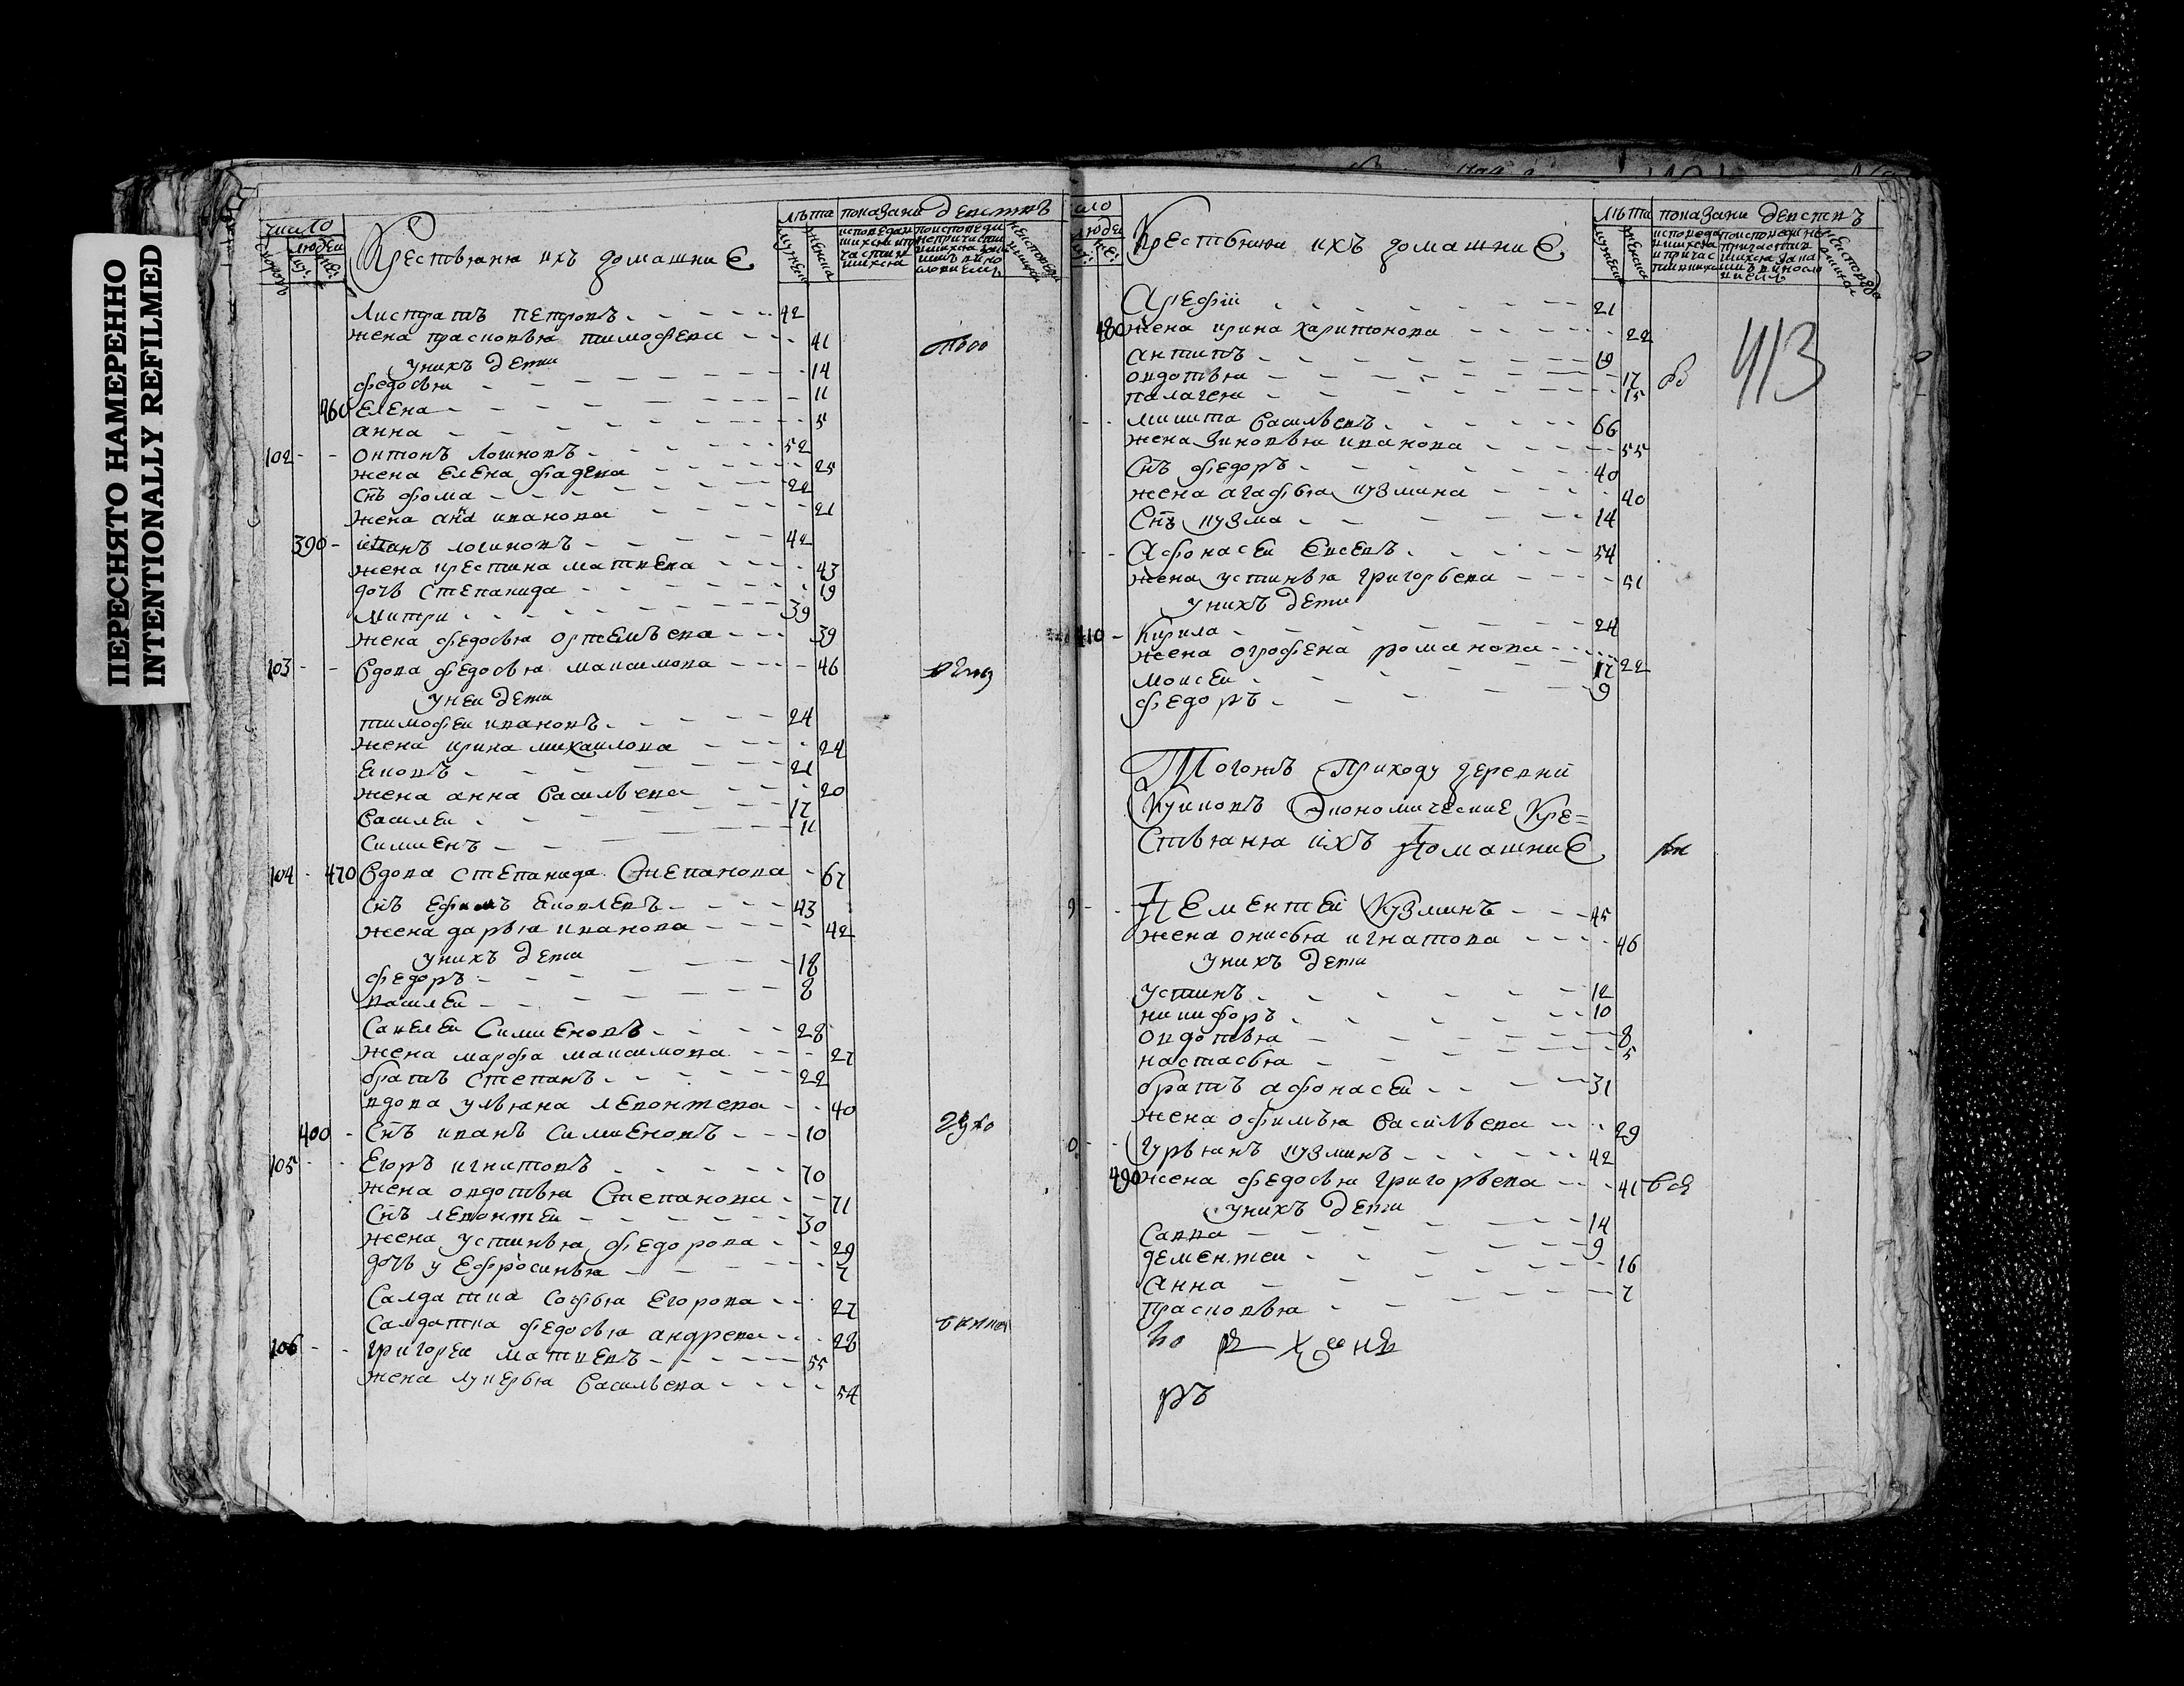 ПЕРЕСНЯТО НАМЕРЕННО
INTENTIONALLY REFILMED
число
людеи
Крестьяня ихъ домашние
лѣта
показани действъ
Листратъ Петровъ 42
жена прасковья тимофева 41
у нихъ дети
федосья 14
460 Елена 11
анна 5
102 онтонъ логиновъ 52
жена Елена фадева 25
снъ фома 22
жена анна иванова 21
390 иванъ логиновъ 42
жена крестина матвева 43
дочь степанида 19
митри 39
жена федосья ортемьева 39
103 вдова федосья максимова 46
у неи дети
тимофеи ивановъ 24
жена ирина михаилова 24
яковъ 21
жена анна васильева 20
василеи 17
симиенъ 11
104 470 вдова степанида степанова 67
снъ ефимъ яковлевъ 43
жена дарья иванова 42
у нихъ дети
федоръ 18
василеи 8
савелеи симиеновъ 28
жена марфа максимова 27
братъ степанъ 22
вдова ульяна левонтева 40
400 снъ иванъ симиеновъ 10
105 Егоръ игнатовъ 70
жена овдотья степанова 71
снъ левонтеи 30
жена устинья федорова 29
дочь у Ефросинья 7
салдатка софья Егорова 27
салдатка федосья андрева 28
106 григореи матвевъ 55
жена лукерья васильева 54
число
людеи
Крестьяня ихъ домашние
лѣта
показани действъ
413
Арефіи 21
480 жена ирина харитонова 22
антипъ 19
овдотья 17
палагея 15
микита васильевъ 66
жена зиновья иванова 55
снъ федоръ 40
жена агафья кузмина 40
снъ кузма 14
Афонасеи Евсевъ 54
жена устинья григорьева 51
у нихъ дети
410 Кирила 24
жена огрофена романова 22
моисеи 17
федоръ 9
Тогожъ приходу деревни
Куйковъ Экономические Кре=
стьяня ихъ домашние
Дементеи Кузминъ 45
жена онисья игнатова 46
у нихъ дети
устинъ 12
никифоръ 10
овдотья 8
настасья 5
братъ афонасеи 31
жена офимья васильева 29
гурьянъ кузминъ 42
490 жена федосья григорьева 41
у нихъ дети
савва 14
дементеи 9
анна 16
прасковья 7
ръ